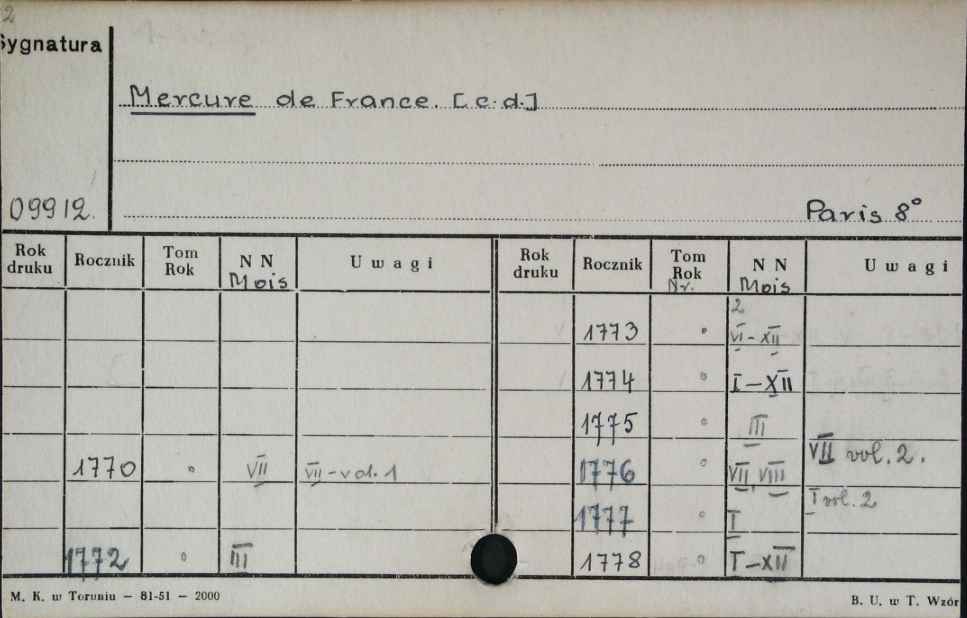 2
Sygnatura
Mercure de France. [c.d.]
09912.
Paris 8°
Rok druku Rocznik Tom Rok N N Mois Uwagi Rok druku Rocznik Tom Rok Nr. N N Mois Uwagi
2
1773 ° VI-XII
1774 ° I-XII
1775 ° III
1770 ° VII VII-vol. 1 1776 ° VII, VIII VII vol. 2.
1777 ° I I vol. 2
1772 ° III 1778 ° I-XII
M. K. w Toruniu — 81-51 — 2000
B. U. w T. Wzór